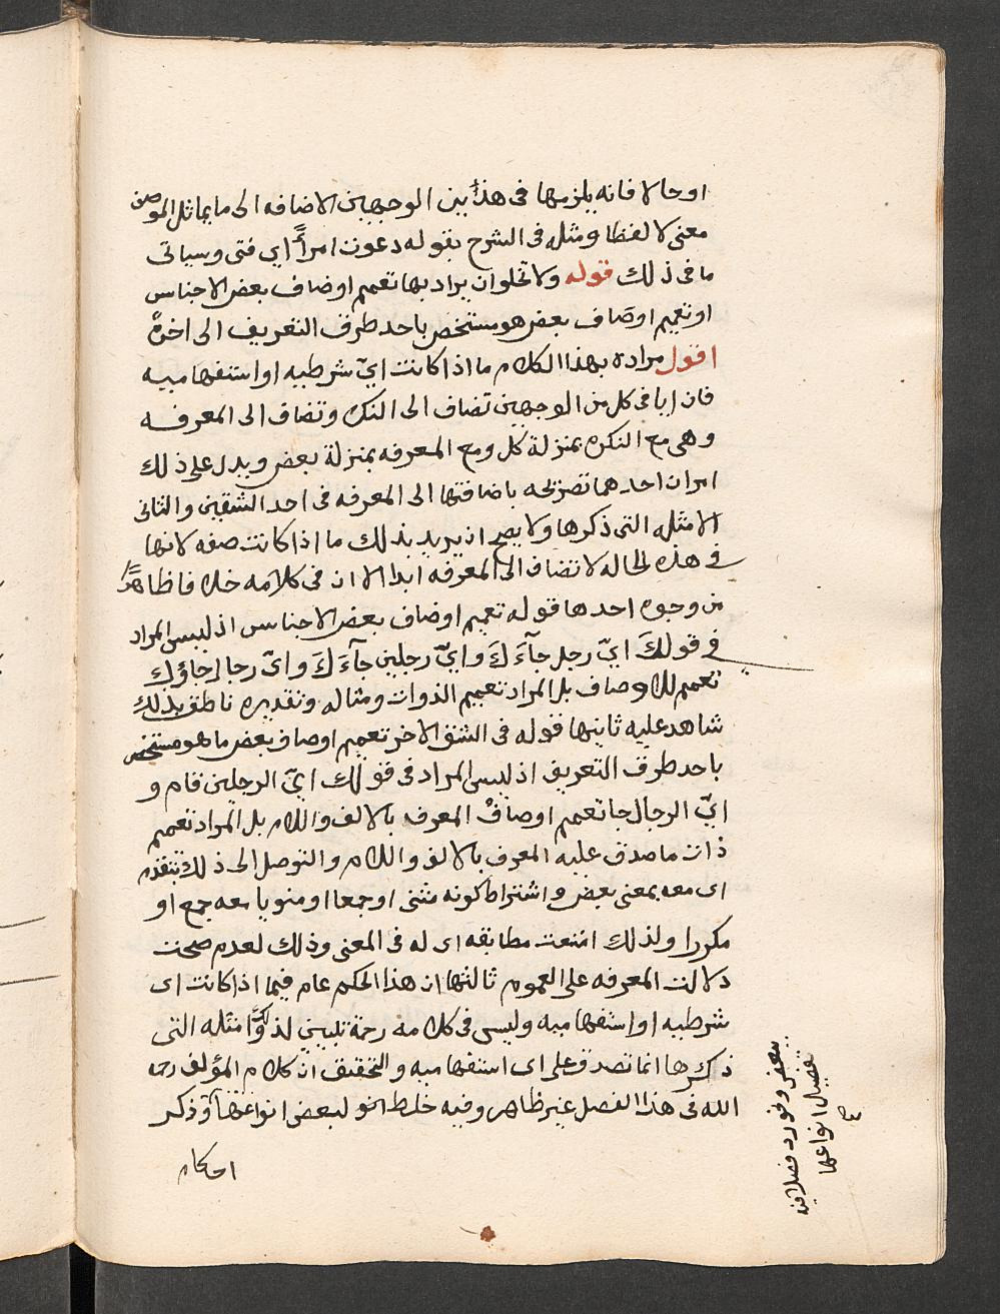 اوحالا فانه يلزمها فى هذين الوجهين الاضافه الى ما يماثل الموصوف
معنى لا لفظا ومثله فى الشرح بقوله دعوت امرأً اي فتى وسياتى
ما فى ذلك قوله ولا تخلوان يراد بها تعميم اوصاف بعض الاجناس
او تعميم اوصاف بعض هو مستخص باحد طرق التعريف الى اخره
اقول مراده بهذا الكلام ما اذا كانت ايّ شرطيه او استفهاميه
فان ايا فى كل من الوجهين تضاف الى النكره وتضاف الى المعرفه
وهى مع النكره بمنزلة كل ومع المعرفه بمنزلة بعض ويدل على ذلك
امران احدهما تصريحه باضافتها الى المعرفه فى احد الشقين والثانى
الامثله التى ذكرها ولا يصح ان يريد بذلك ما اذا كانت صفه لانها
فى هذه الحاله لا تضاف الى المعرفه ابدا الا ان فى كلامه خللا ظاهرًا
من وجوه احدها قوله تعميم اوصاف بعض الاجناس اذ ليس المراد
فى قولكَ ايّ رجل جآءَكَ وايّ رجلين جآءَكَ واىّ رجال جاؤك
تعميم للاوصاف بل المراد تعميم الذوات ومثاله وتقديره ناطق بذلك
شاهد عليه ثانيها قوله فى الشق الاخر تعميم اوصاف بعض ما هو مستخص
باحد طرق التعريف اذ ليس المراد فى قولك ايّ الرجلين قام و
ايّ الرجال جا تعميم اوصاف المعرف بالالف واللام بل المراد تعميم
ذات ما صدق عليه المعرف بالالف واللام والتوصل الى ذلك بتقدم
اى معه بمعنى بعض واشتراط كونه مثنى او جمعا او منويا معه جمع او
مكررا ولذلك امتنعت مطابقه اى له فى المعنى وذلك لعدم صحت
دلالت المعرفه على العموم ثالثها ان هذا الحكم عام فيما اذا كانت اى
شرطيه او استفهاميه وليس فى كلامه رحمة تبيين لذلك وامثله التى
ذكرها انما تصدق على اى استفهاميه والتحقيق ان كلام المؤلف رحمه
الله فى هذا الفصل غير ظاهر وفيه خلط لبعض انواعها وذكر
احكام
تفصيل انواعها
صح